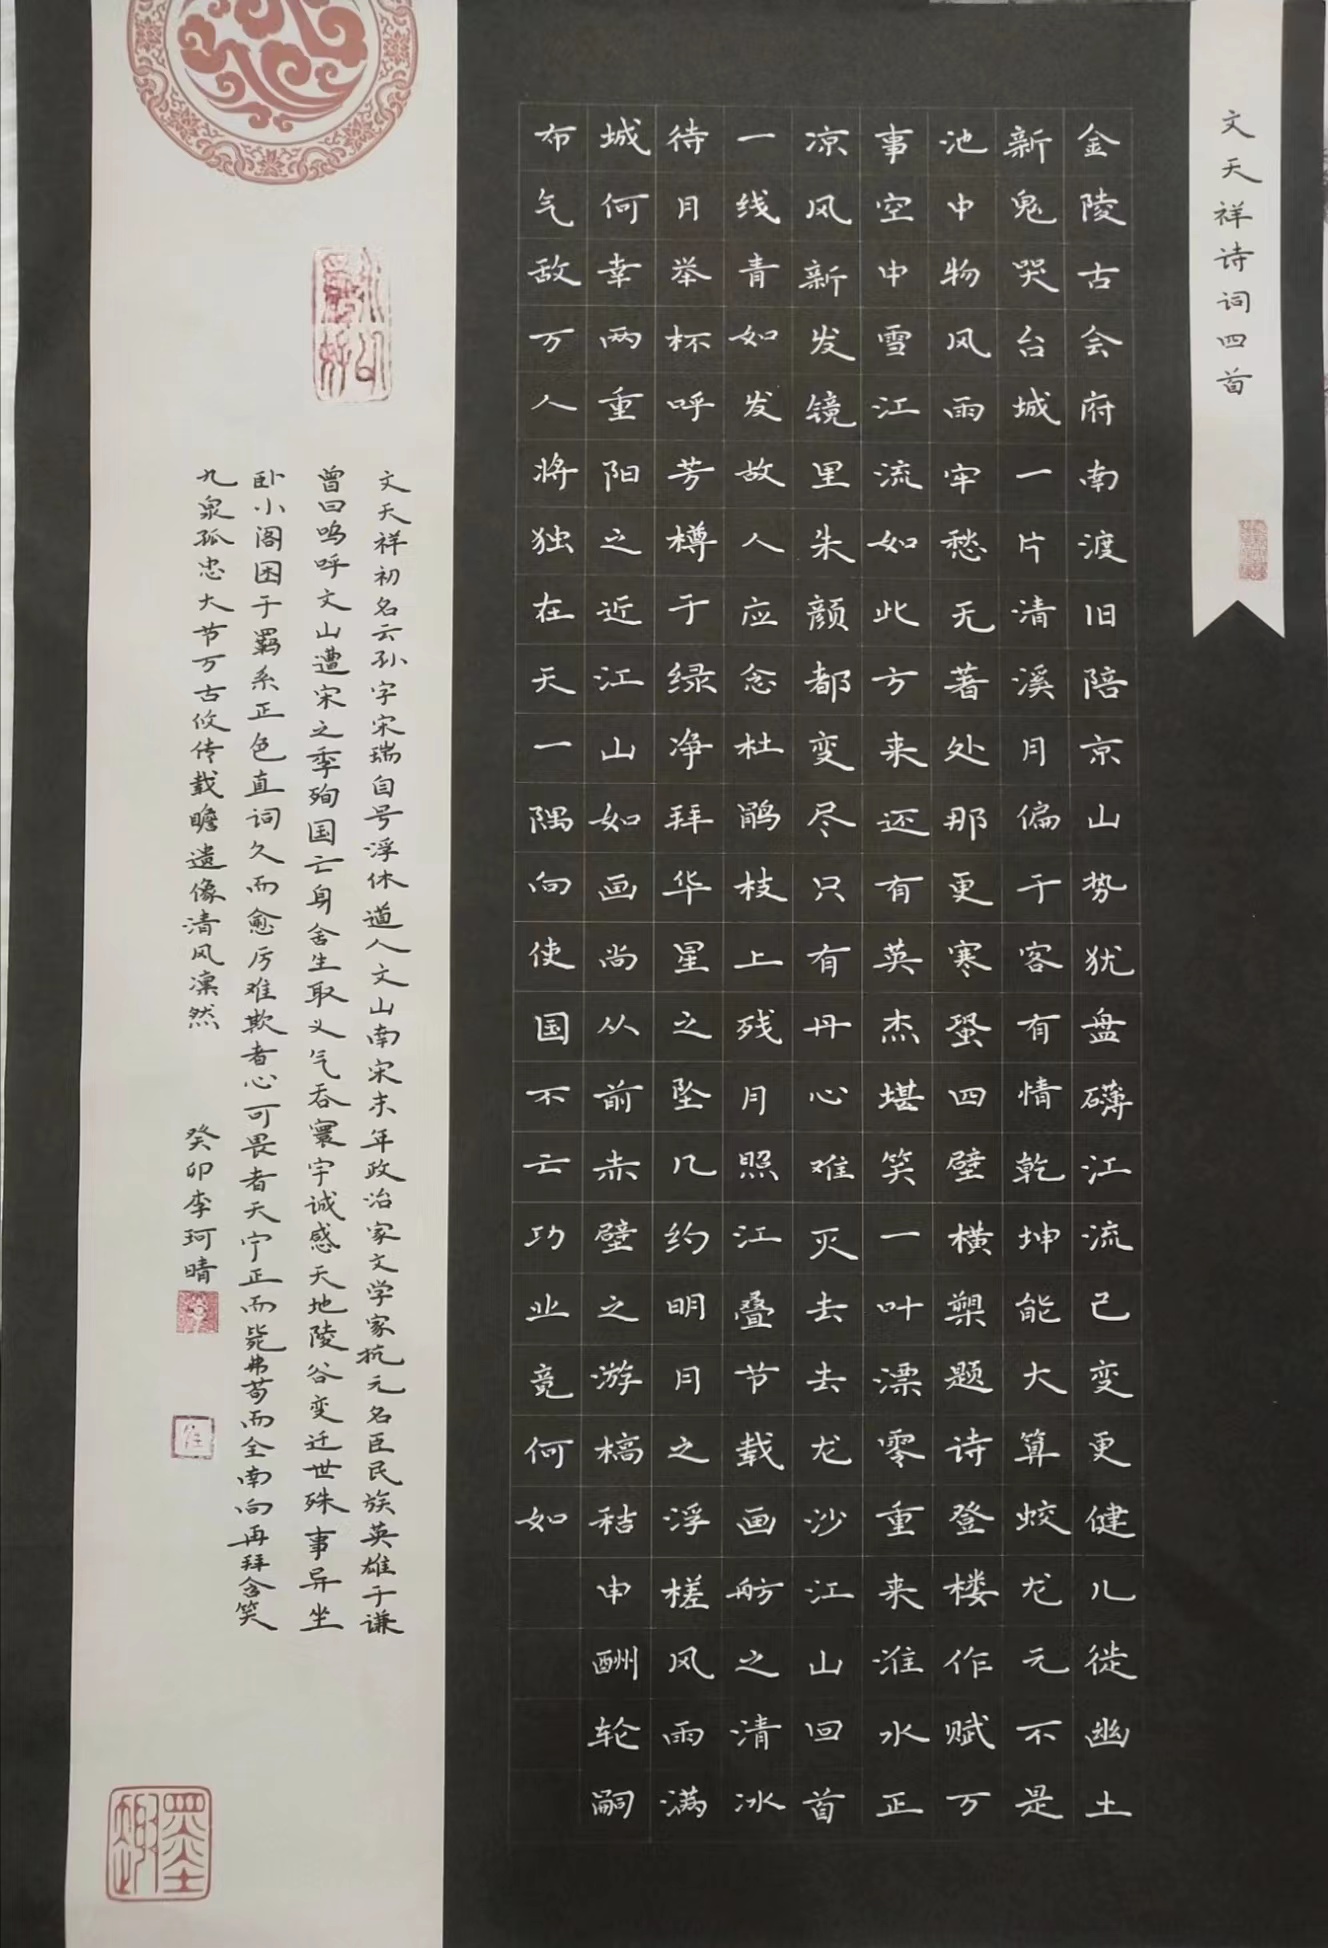 文天祥诗词四首
金陵古会府南渡旧陪京山势犹盘礴江流已变更健儿徙幽土
新鬼哭台城一片清溪月偏于客有情乾坤能大算蛟龙元不是
池中物风雨牢愁无著处那更寒蛩四壁横槊题诗登楼作赋万
事空中雪江流如此方来还有英杰堪笑一叶漂零重来淮水正
凉风新发镜里朱颜都变尽只有丹心难灭去去龙沙江山回首
一线青如发故人应念杜鹃枝上残月照江叠节载画舫之清冰
待月举杯呼芳樽于绿净拜华星之坠几约明月之浮槎风雨满
城何幸两重阳之近江山如画尚从前赤壁之游槁秸申酬轮嗣
布气敌万人将独在天一隅向使国不亡功业竟何如
文天祥初名云孙字宋瑞自号浮休道人文山南宋末年政治家文学家抗元名臣民族英雄于谦
曾曰呜呼文山遭宋之季殉国亡身舍生取义气吞寰宇诚感天地陵谷变迁世殊事异坐
卧小阁困于羁系正色直词久而愈厉难欺者心可畏者天宁正而毙弗苟而全南向再拜含笑
九泉孤忠大节万古攸传载瞻遗像清风凛然
癸卯李珂晴
墨趣